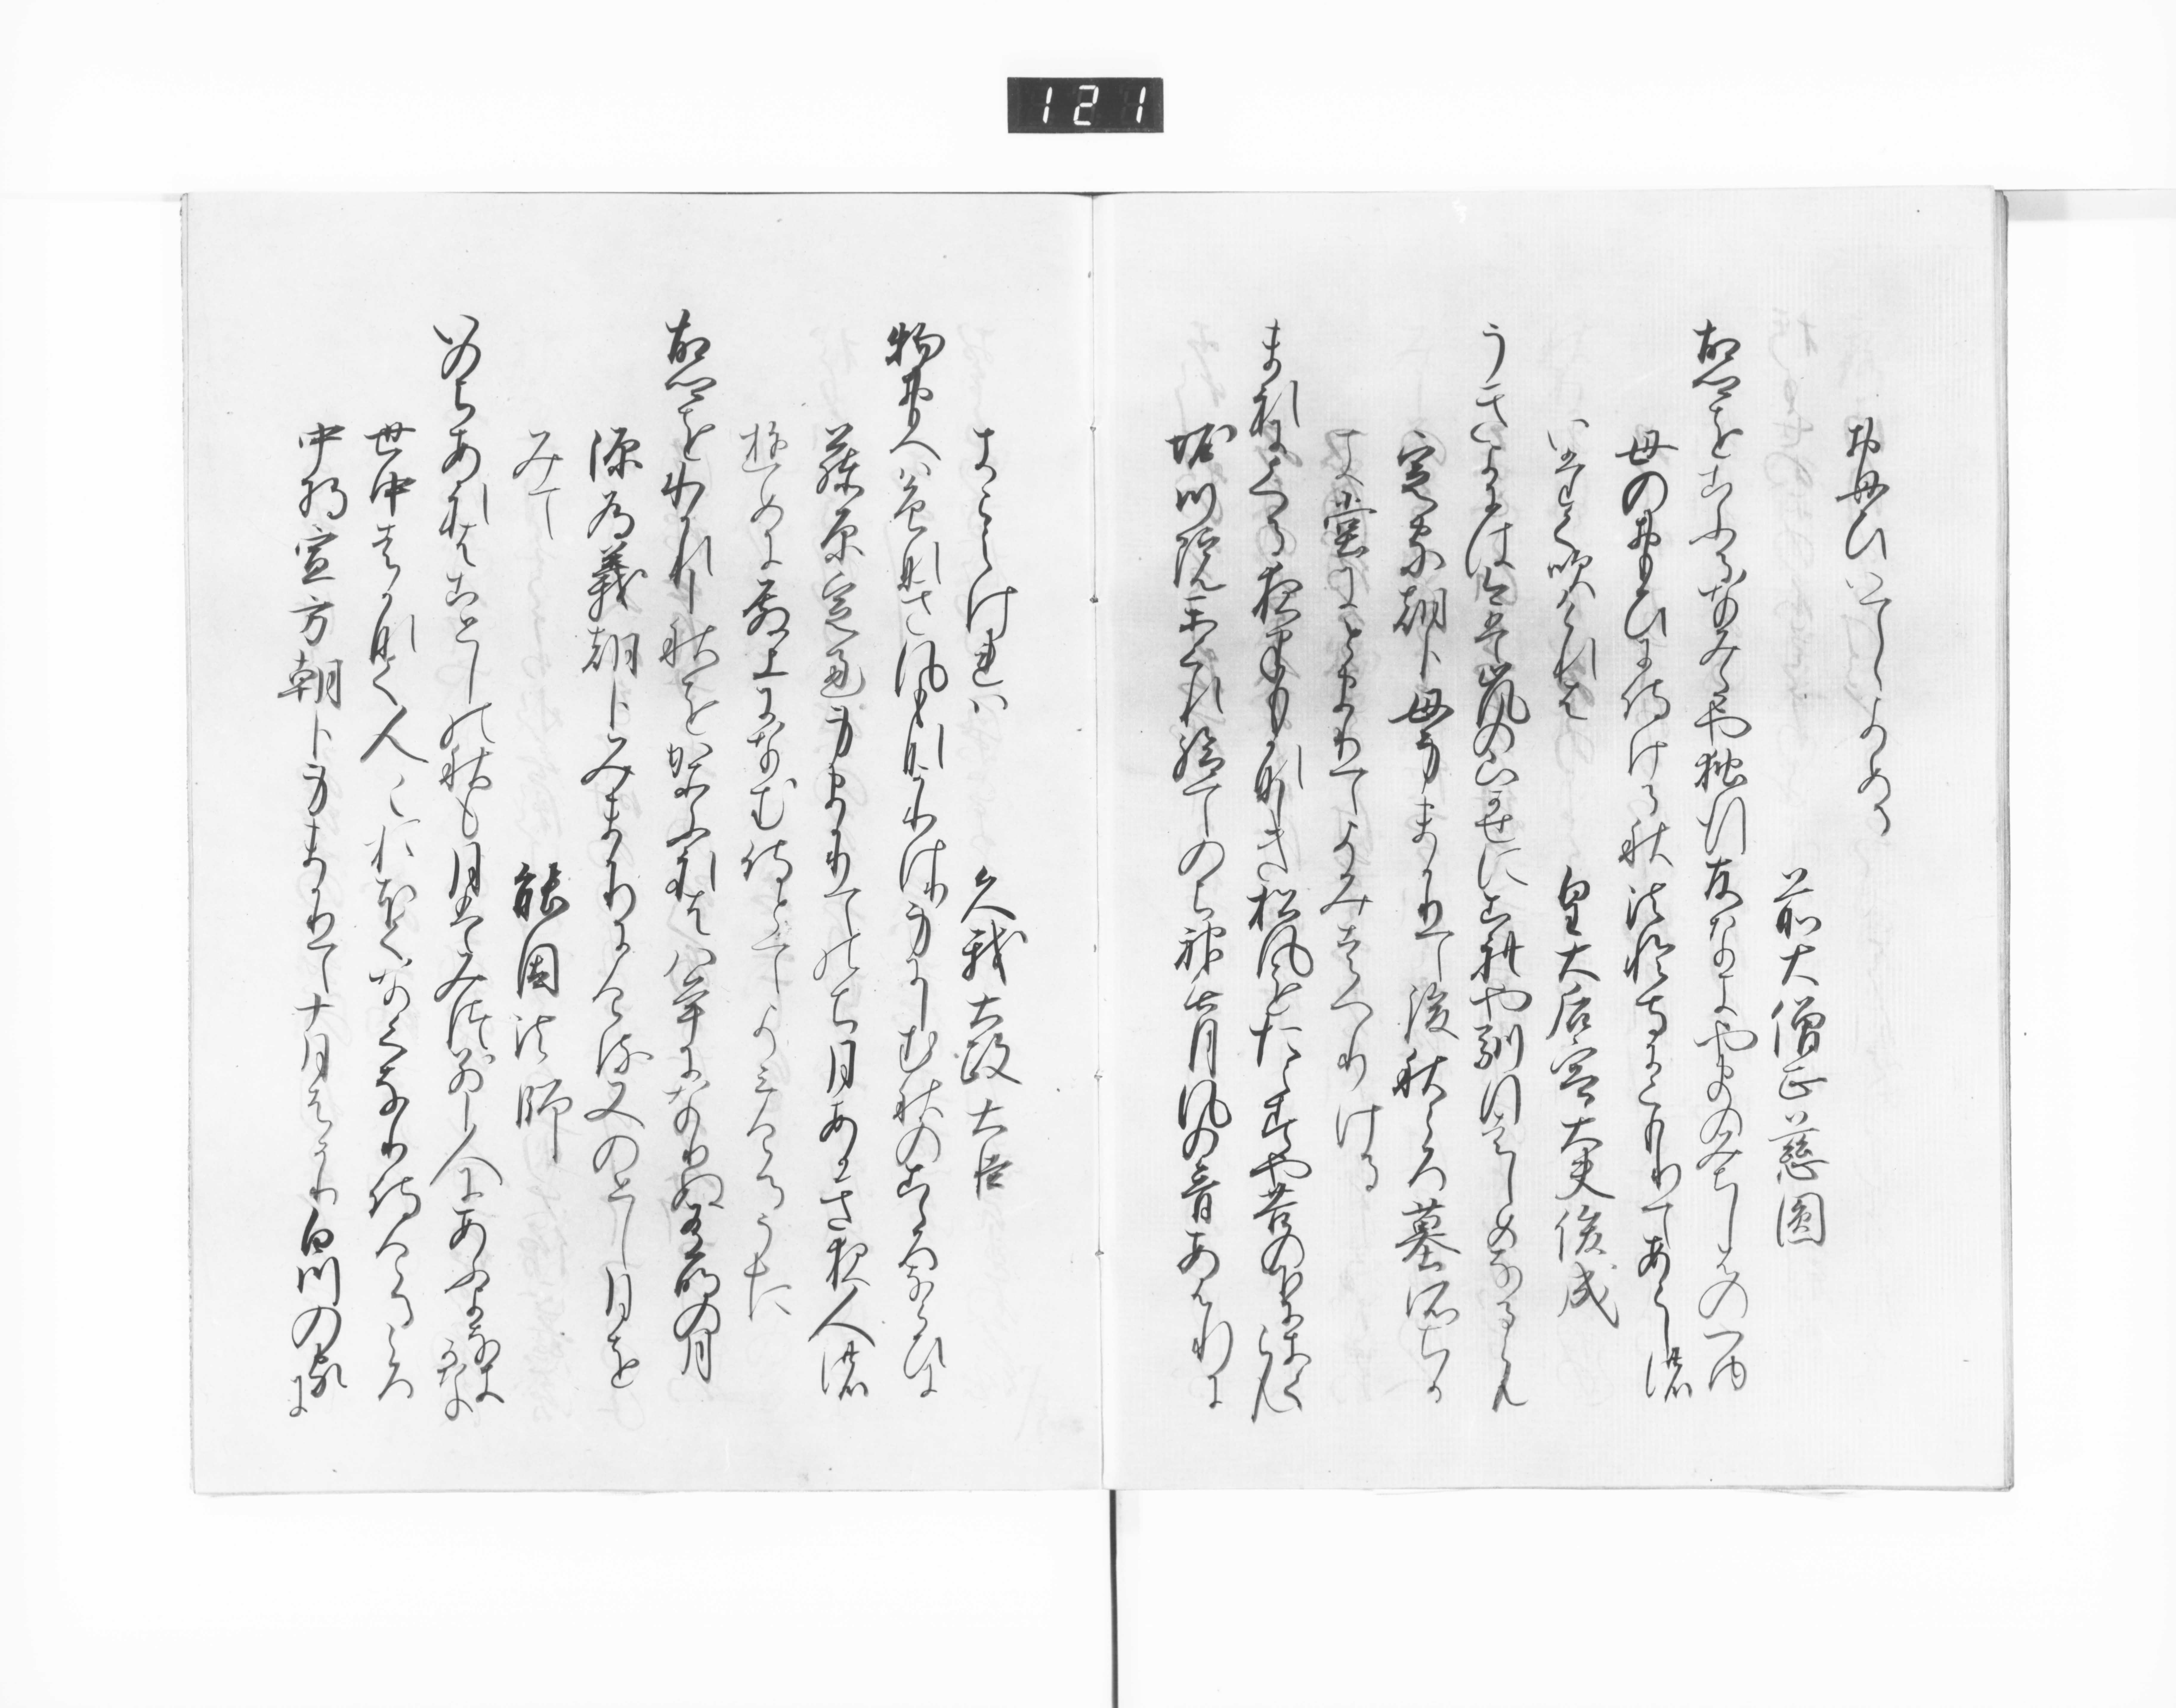 121
おもひいてゝよめる
前大僧正慈圓
故郷をこふるなみたや独行友なきやまのみちしはのつゆ
母のおもひに侍ける秋法輪寺にこもりてあらしの
いたく吹けれは
皇太后宮大夫俊成
うきよには今は嵐の山かせにこれや馴行はしめなるらん
定家朝臣母身まかりて後秋ころ墓所ちか
き堂にとまりてよみ侍りける
まれにくる夜半もかなしき松風をたえすや苔の下にきくらん
堀川院かくれ給てのち神無月風の音あはれに
きこえけれは
久我太政大臣
物おもへは色なき風もなかりけり身にしむ秋のこゝろならひに
藤原定通身まかりてのち月あかき夜人の
ゆめに殿上になむ侍とてよみ侍けるうた
故郷をわかれし秋をかそふれは八年になりぬ有明の月
源為善朝臣みまかりにける又のとし月を
みて
能因法師
いのちあれはことしの秋も月はみつ別し人にあふよなきかな
世中はかなく人々おほくなくなり侍けるころ
中将宣方朝臣身まかりて十月はかり白川の家に